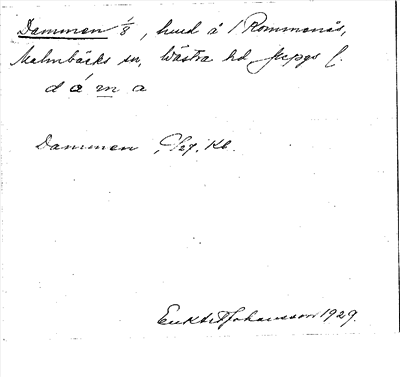 Dammen 1/8, hmd å 1 Rommenås,
Malmbäcks sn, Västra hd Jkpgs l.
d á m a
Dammen Kl.
Enl Johansson 1929.